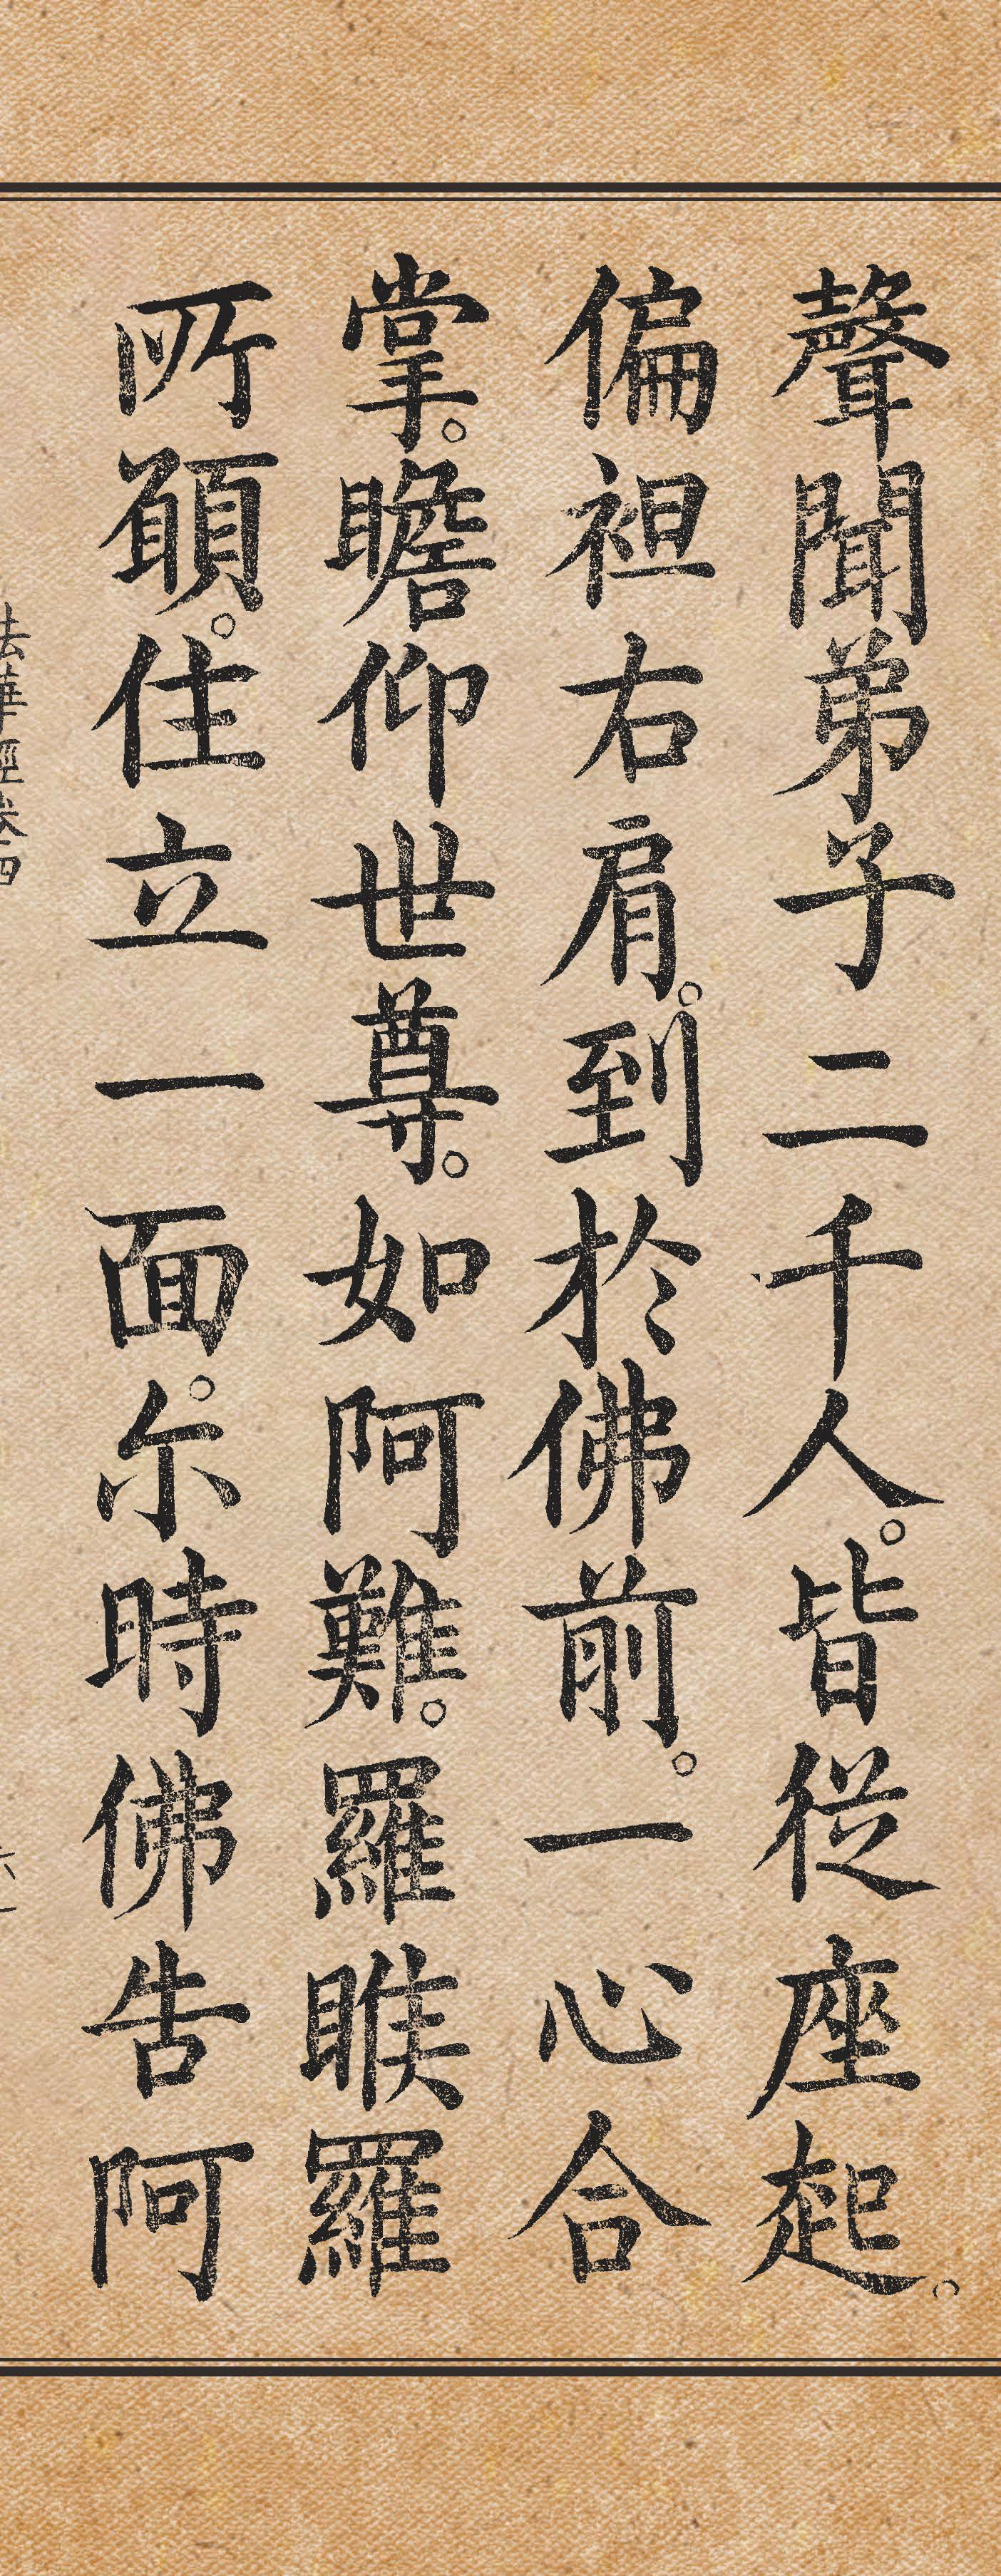 聲聞弟子二千人。皆從座起。
偏袒右肩。到於佛前。一心合
掌。瞻仰世尊。如阿難。羅睺羅
所願。住立一面。尒時佛告阿
法華經卷四